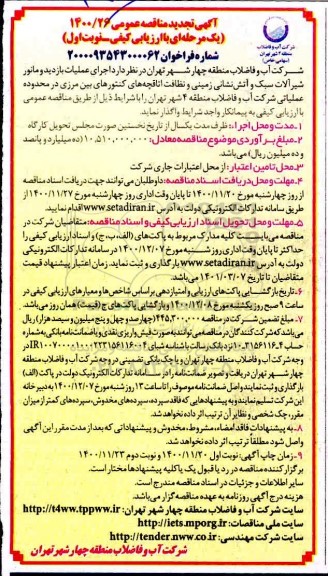 شرکت آب و فاضلاب
منطقه ۴ شهر تهران
(سهامی خاص)
آگهی تجدید مناقصه عمومی ۱۴۰۰/۲۶
(یک مرحله‌ای با ارزیابی کیفی - نوبت اول)
شماره فراخوان ۲۰۰۰۰۹۳۵۴۳۰۰۰۰۶۲
شرکت آب و فاضلاب منطقه چهار شهر تهران در نظر دارد اجرای عملیات بازدید و مانور
شیرآلات سبک و آتش‌نشانی زمینی و نظافت اتاقچه‌های کنتورهای بین مرزی در محدوده
عملیاتی شرکت آب و فاضلاب منطقه ۴ شهر تهران را با شرایط ذیل از طریق مناقصه عمومی
با ارزیابی کیفی به پیمانکار واجد شرایط واگذار نماید.
۱-مدت و محل اجرا: ظرف مدت یکسال از تاریخ نخستین صورت مجلس تحویل کارگاه
۲-مبلغ برآوردی موضوع مناقصه معادل: ۱۰,۵۱۰,۰۰۰,۰۰۰ (ده میلیارد و پانصد
و ده میلیون ریال) می‌باشد.
۳-محل تامین اعتبار: از محل اعتبارات جاری شرکت
۴-مهلت و محل دریافت اسناد مناقصه: داوطلبان می‌توانند جهت دریافت اسناد مناقصه
از روز چهارشنبه مورخ ۱۴۰۰/۱۱/۲۰ تا پایان وقت اداری روز چهارشنبه مورخ ۱۴۰۰/۱۱/۲۷ از
طریق سامانه تدارکات الکترونیکی دولت به آدرس www.setadiran.ir اقدام نمایند.
۵-مهلت و محل تحویل اسناد ارزیابی کیفی و اسناد مناقصه: متقاضیان شرکت در
مناقصه می‌بایست کلیه مدارک مربوط به پاکت‌های (الف، ب، ج) و اسناد ارزیابی کیفی را
حداکثر تا پایان وقت اداری روز شنبه مورخ ۱۴۰۰/۱۲/۰۷ در سامانه تدارکات الکترونیکی
دولت به آدرس www.setadiran.ir بارگذاری و ثبت نمایند. زمان اعتبار پیشنهاد قیمت
متقاضیان تا تاریخ ۱۴۰۱/۰۳/۰۷ می‌باشد.
۶-تاریخ بازگشایی پاکت‌های ارزیابی و امتیازدهی براساس شاخص‌ها و معیارهای ارزیابی کیفی در
ساعت ۹ صبح روز یکشنبه مورخ ۱۴۰۰/۱۲/۰۸ و بازگشایی پاکت‌های ج (قیمت) همان روز می‌باشد.
۷-مبلغ تضمین شرکت در مناقصه ۴۴۵,۳۰۰,۰۰۰ (چهارصد و چهل و پنج میلیون و سیصد هزار) ریال
می‌باشد که شرکت‌کنندگان در مناقصه می‌توانند به صورت فیش واریز نقدی و یا ضمانت‌نامه بانکی به شماره
وجه شرکت آب و فاضلاب منطقه چهار تهران و یا چک بانکی تضمینی در وجه شرکت آب و فاضلاب منطقه
چهار شهر تهران دریافت و تصویر ضمانت‌نامه را در سامانه تدارکات الکترونیک دولت در پاکت (الف)
بارگذاری و ثبت نمایند و اصل ضمانت‌نامه موصوف را تا ساعت ۱۳ روز شنبه مورخ ۱۴۰۰/۱۲/۰۷ به دبیرخانه
این شرکت تسلیم نمایند و به پیشنهادهایی که فاقد سپرده، سپرده‌های مخدوش، سپرده‌های کمتر از میزان
مقرر، چک شخصی و نظایر آن ترتیب اثر داده نخواهد شد.
۸-به پیشنهادات فاقد امضاء، مشروط، مخدوش و پیشنهاداتی که بعد از مدت مقرر این آگهی
واصل شود مطلقا ترتیب اثر داده نخواهد شد.
۹-زمان چاپ آگهی: نوبت اول ۱۴۰۰/۱۱/۲۰ و نوبت دوم ۱۴۰۰/۱۱/۲۳
برگزارکننده مناقصه در رد یا قبول یک یا کلیه پیشنهادها مختار است.
سایر اطلاعات و جزئیات در اسناد مناقصه مندرج است.
هزینه درج آگهی روزنامه به عهده مناقصه گزار می‌باشد.
سایت شرکت آب و فاضلاب منطقه چهار شهر تهران: http://t4ww.tppww.ir
سایت ملی مناقصات: http://iets.mporg.ir
سایت شرکت مهندسی: http://tender.nww.co.ir
شرکت آب و فاضلاب منطقه چهار شهر تهران